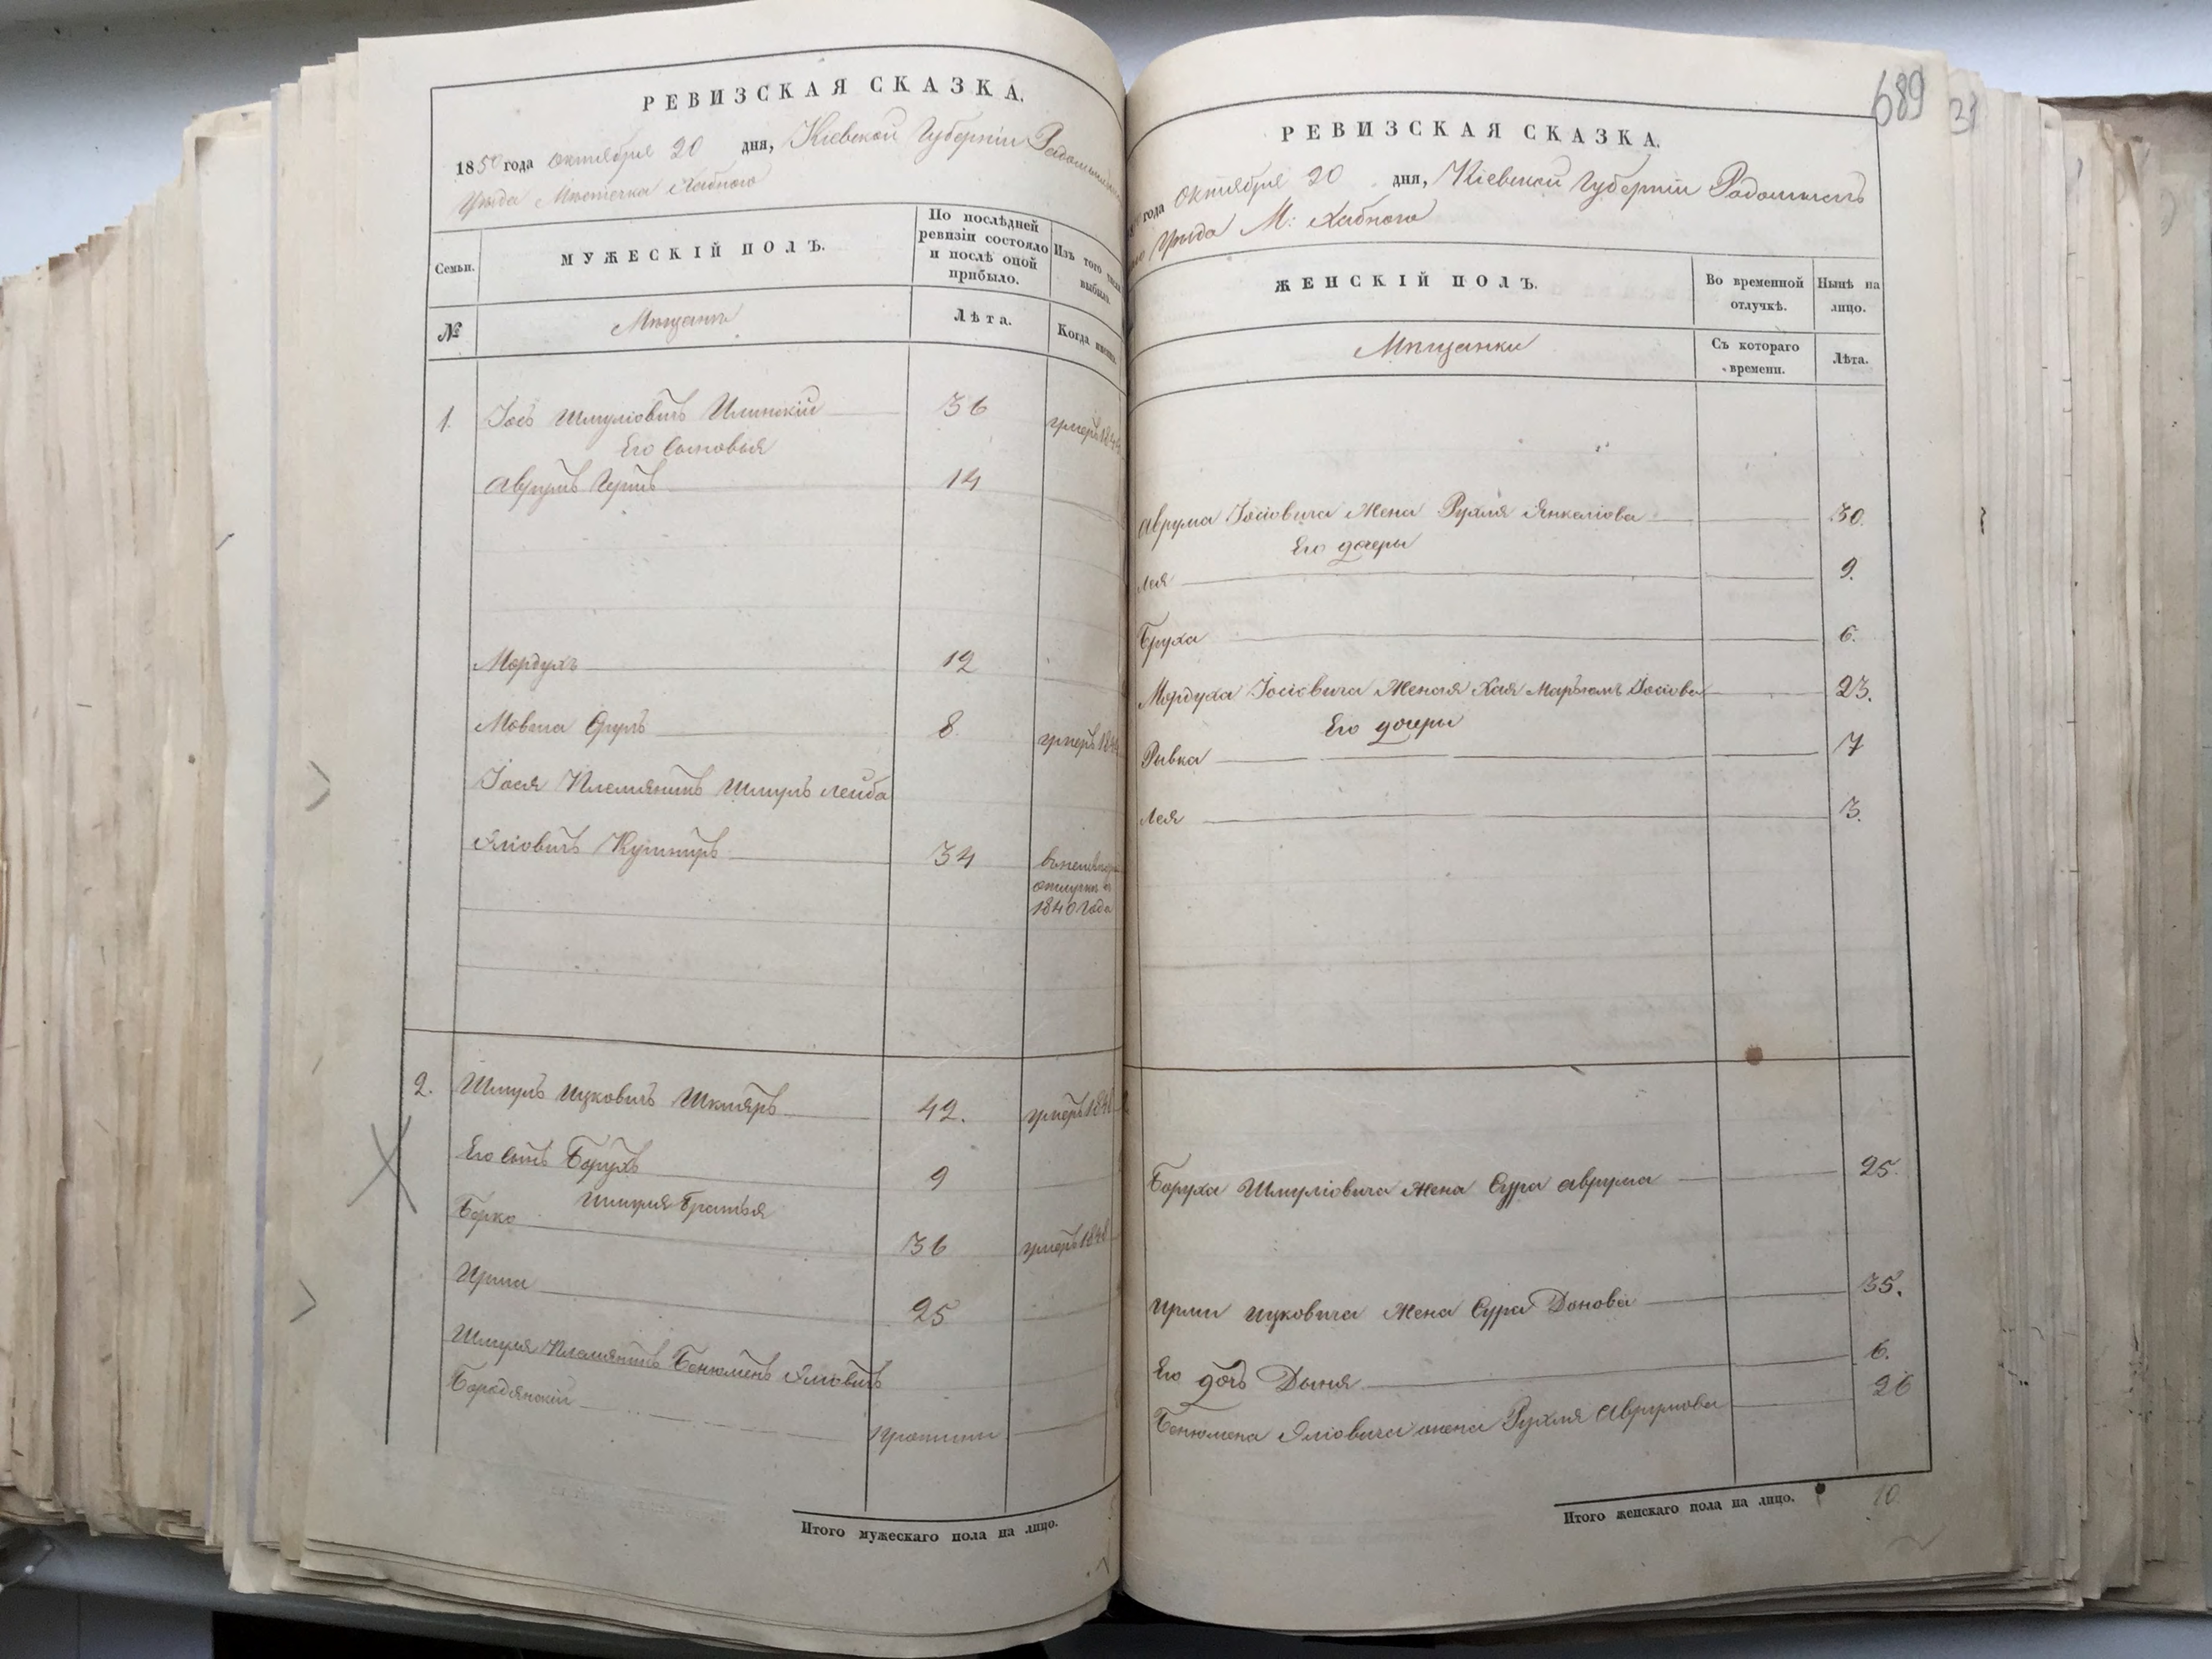 РЕВИЗСКАЯ СКАЗКА.
1850 года октября 20 дня, Кіевской Губерніи Радомысльск
Уѣзда Мѣстечка Хабного
Семьи.
МУЖЕСКІЙ ПОЛЪ.
По послѣдней ревизіи состояло и послѣ оной прибыло.
Изъ того числа выбыло.
№
Мѣщане
Лѣта.
Когда именно.
1. Іось Шмуліовичъ Илинскій 36 умеръ 184
Его Сыновья
Аврумъ 14
Мордухъ 12
Мовша Срулъ 8 умеръ 184
Іося Племянникъ Шмуль Лейба
Яліовичъ Кушниръ 34
отлучки
1840 года
2. Шмуль Ицковичъ Шкляръ 42. умеръ 1848
Его Сынъ Борухъ 9
Шмуля Братья
Берко 36 умеръ 1848
Ирша 25
Шмуля Племянникъ Бенюменъ Яліовичъ
Бородянскій
Итого мужескаго пола на лицо.
689
РЕВИЗСКАЯ СКАЗКА.
года октября 20 дня, Кіевской Губерніи Радомысль
Уѣзда М: Хабного
ЖЕНСКІЙ ПОЛЪ.
Во временной отлучкѣ.
Нынѣ на лицо.
Мѣщанки
Съ котораго времени.
Лѣта.
Аврума Іосіовича Жена Рухля Янкеліова 30.
Его дочеры
Лея 9.
Бруха 6.
Мордуха Іосіовича Жена Хая Марьямъ Іосіова 23.
Его дочеры
Рывка 7
Лея 3.
Боруха Шмуліовича Жена Сура Аврума 25.
Ирши Ицковича Жена Сура Донова 35.
Его дочь Дыня 6.
Бенюмена Яліовича жена Рухля Аврумова 26
Итого женскаго пола на лицо. 10.